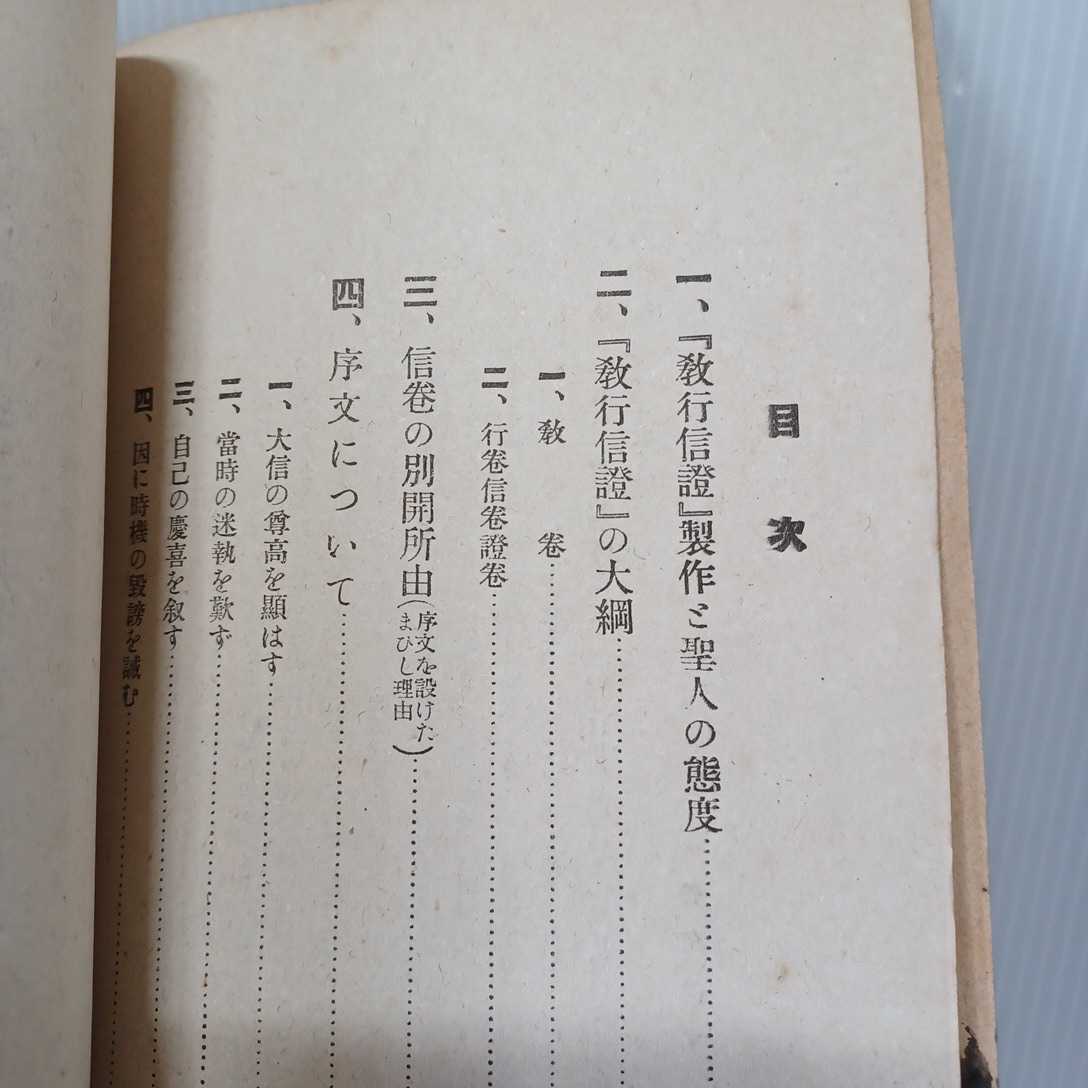 目次
一、『敎行信證』製作と聖人の態度
二、『敎行信證』の大綱
一、敎卷
二、行卷信卷證卷
三、信卷の別開所由(序文を設けたまひし理由)
四、序文について
一、大信の尊高を顯はす
二、當時の迷執を歎ず
三、自己の慶喜を叙す
四、因に時機の毀謗を誡む